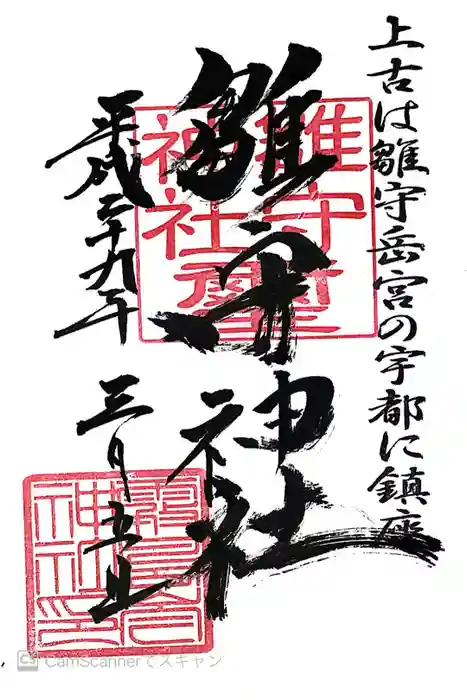 上古は雛守岳宮の宇都に鎮座
雛守神社
平成二十九年
三月五日
雛守
神社璽
神社
CamScannerでスキャン